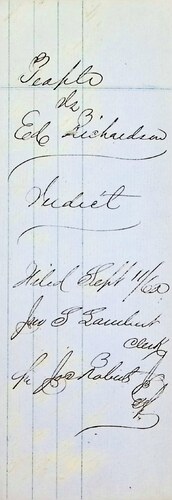 People
vs
Ed Richardson
Indict
Filed Sept 11/60
Jno S Lambert
Clerk
Jos Roberts